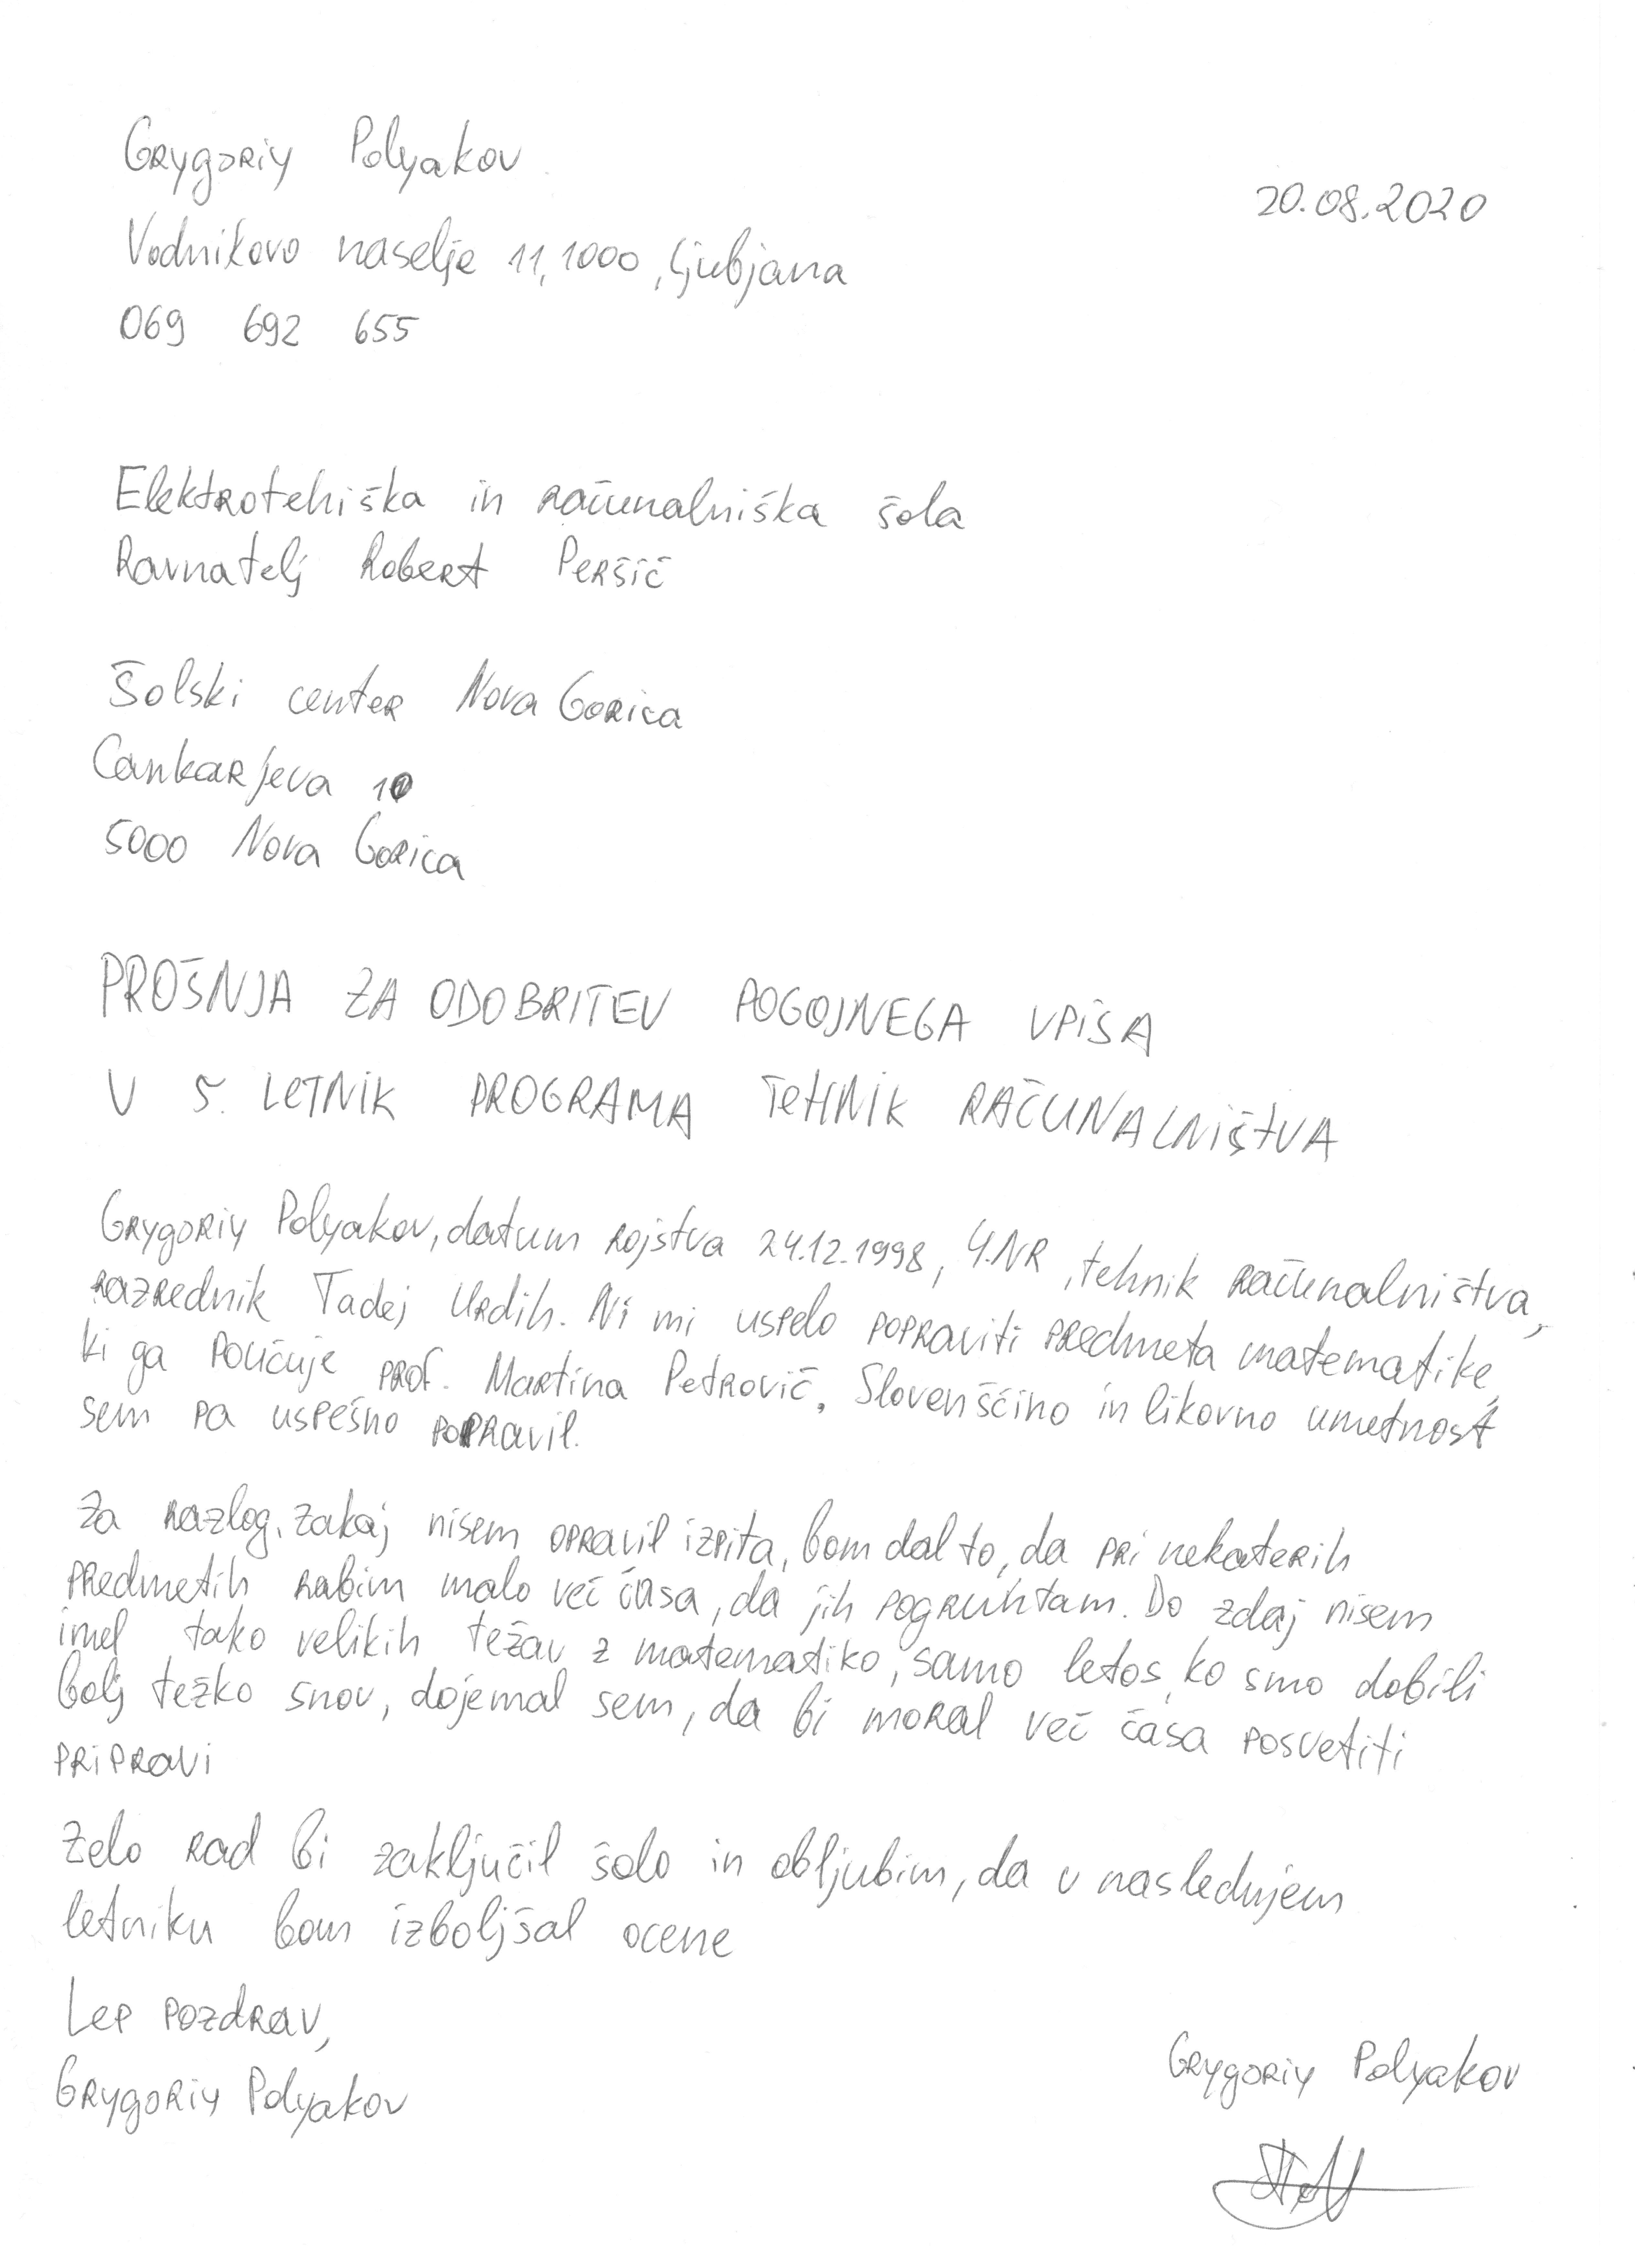 Grygoriy Polyakov
20.08.2020
Vodnikovo naselje 11, 1000, Ljubjana
069 692 655
Elektrotehiška in računalniška šola
Ravnatelj Robert Peršič
Šolski center Nova Gorica
Cankarjeva 10
5000 Nova Gorica
PROŠNJA ZA ODOBRITEV POGOJNEGA VPISA
V 5. LETNIK PROGRAMA TEHNIK RAČUNALNIŠTVA
Grygoriy Polyakov, datum rojstva 24.12.1998, 4.NR, tehnik računalništva,
razrednik Tadej Urdih. Ni mi uspelo popraviti predmeta matematike,
ki ga poučuje prof. Martina Petrovič. Slovenščino in likovno umetnost
sem pa uspešno popravil.
Za razlog, zakaj nisem opravil izpita, bom dal to, da pri nekaterih
predmetih rabim malo več časa, da jih pogruhtam. Do zdaj nisem
imel tako velikih težav z matematiko, samo letos, ko smo dobili
bolj težko snov, dojemal sem, da bi moral več časa posvetiti
pripravi
Zelo rad bi zaključil šolo in obljubim, da v naslednjem
letniku bom izboljšal ocene
Lep pozdrav,
Grygoriy Polyakov
Grygoriy Polyakov